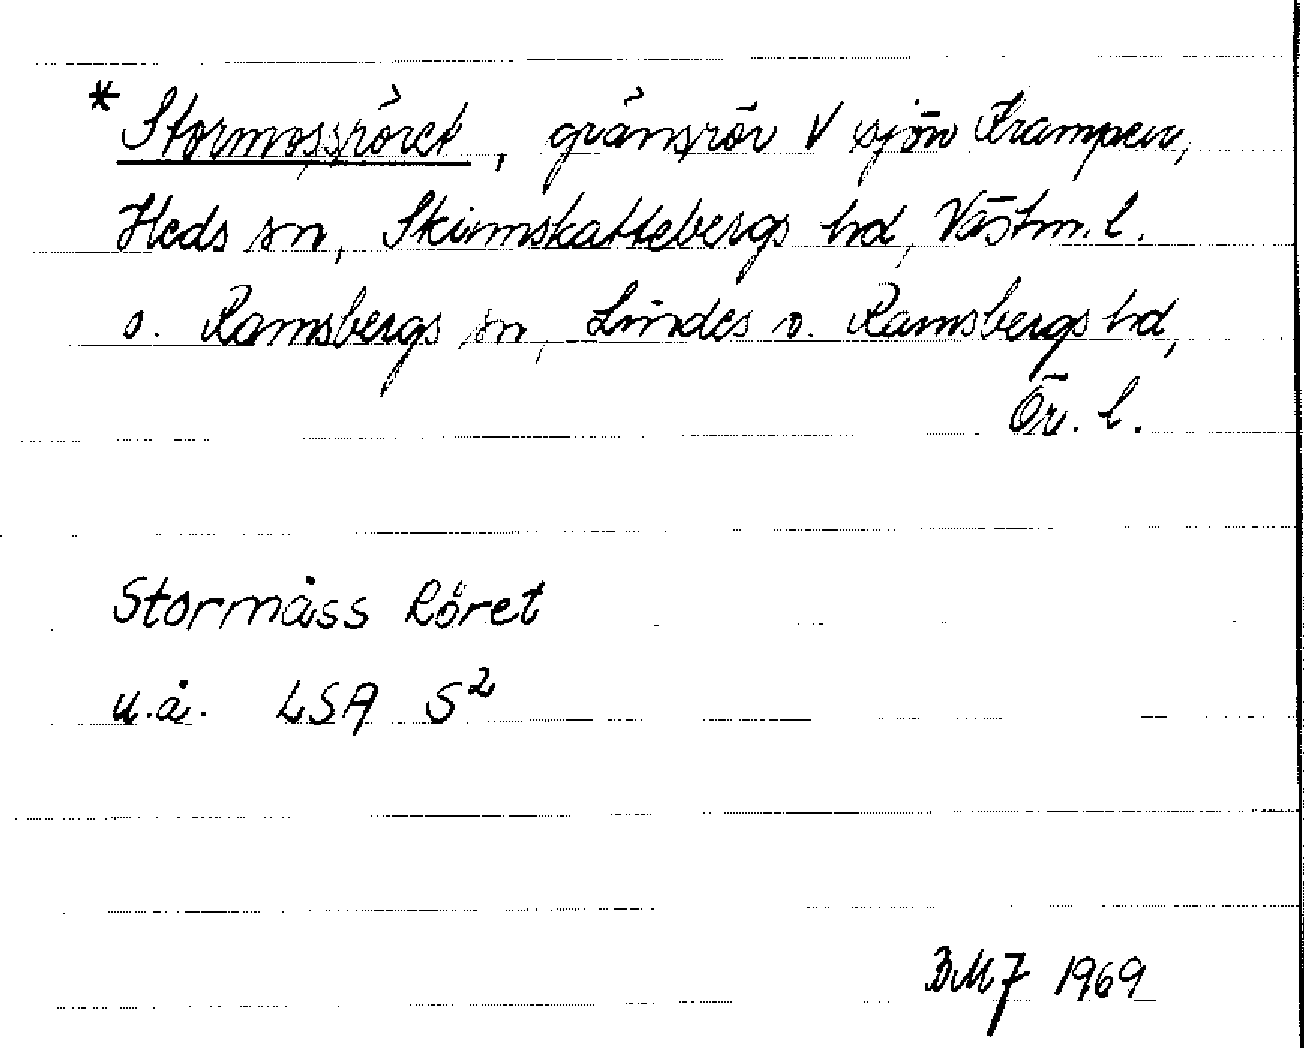 * Stormossröret, gränsrör V sjön Krampen,
Heds sn, Skinnskattebergs hd, Västm. l.
o. Ramsbergs sn, Lindes o. Ramsbergs hd,
Ör. l.
Stormåss Röret
u.å. LSA S²
BMJ 1969